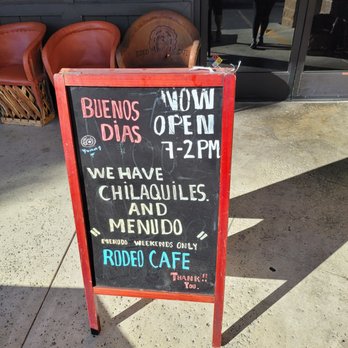 BUENOS DiAS
NOW OPEN
7-2PM
Yummy
WE HAVE
CHILAQUILES.
AND
"MENUDO"
"MENUDO WEEKENDS ONLY
RODEO CAFE
THANK!!
YOU.